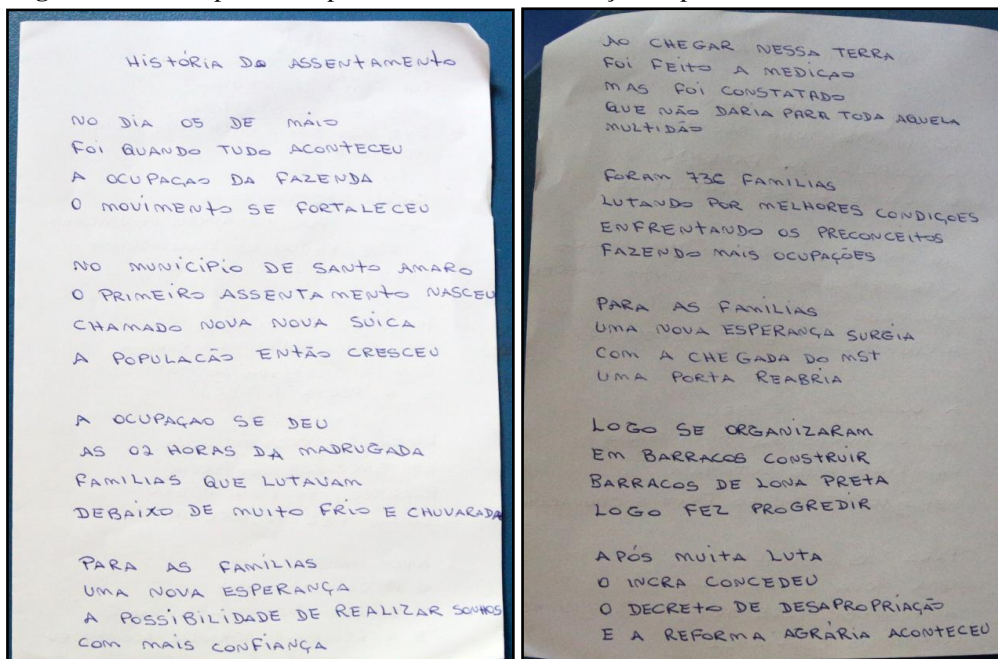 HISTÓRIA DO ASSENTAMENTO
NO DIA 05 DE MAIO
FOI QUANDO TUDO ACONTECEU
A OCUPAÇAO DA FAZENDA
O MOVIMENTO SE FORTALECEU
NO MUNICÍPIO DE SANTO AMARO
O PRIMEIRO ASSENTAMENTO NASCEU
CHAMADO NOVA NOVA SUICA
A POPULACÃO ENTÃO CRESCEU
A OCUPAÇAO SE DEU
AS 02 HORAS DA MADRUGADA
FAMILIAS QUE LUTAVAM
DEBAIXO DE MUITO FRIO E CHUVARADA
PARA AS FAMÍLIAS
UMA NOVA ESPERANÇA
A POSSIBILIDADE DE REALIZAR SONHOS
COM MAIS CONFIANÇA
AO CHEGAR NESSA TERRA
FOI FEITO A MEDIÇAO
MAS FOI CONSTATADO
QUE NÃO DARIA PARA TODA AQUELA
MULTIDÃO
FORAM 736 FAMÍLIAS
LUTANDO POR MELHORES CONDIÇOES
ENFRENTANDO OS PRECONCEITOS
FAZENDO MAIS OCUPAÇÕES
PARA AS FAMÍLIAS
UMA NOVA ESPERANÇA SURGIA
COM A CHEGADA DO MST
UMA PORTA REABRIA
LOGO SE ORGANIZARAM
EM BARRACOS CONSTRUIR
BARRACOS DE LONA PRETA
LOGO FEZ PROGREDIR
APÓS MUITA LUTA
O INCRA CONCEDEU
O DECRETO DE DESAPROPRIAÇÃO
E A REFORMA AGRÁRIA ACONTECEU